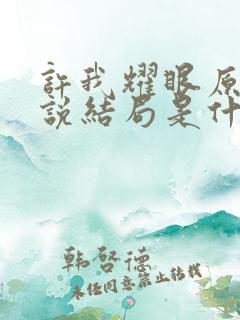 許我耀眼原
說結局是什
韩啓德
未经同意禁止转载